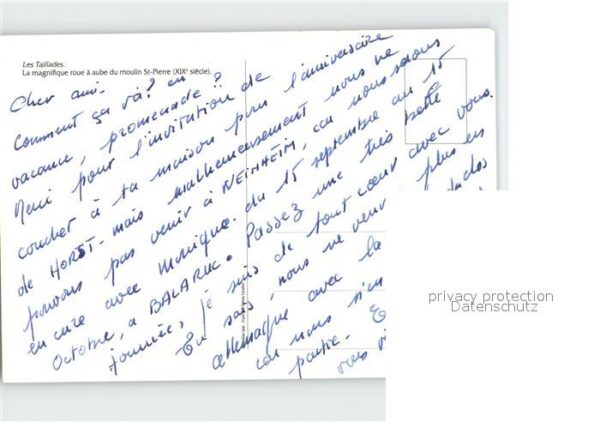 Les Taillades.
La magnifique roue à aube du moulin St-Pierre (XIXe siècle).
Cher ami -
Comment ça và? en
vacance, promenade?
Merci pour l'invitation de
coucher à ta maison pour l'anniversaire
de HORST - mais malheureusement nous ne
pouvons pas venir à NEINHEIM, car nous serons
en cure avec Monique. du 15 septembre au 15
Octobre, a BALARUC. Passez une très belle
journée, je suis de tout cœur avec vous.
Tu sais, nous ne plus en
allemagne avec la
car nous
partie -
privacy protection
Datenschutz